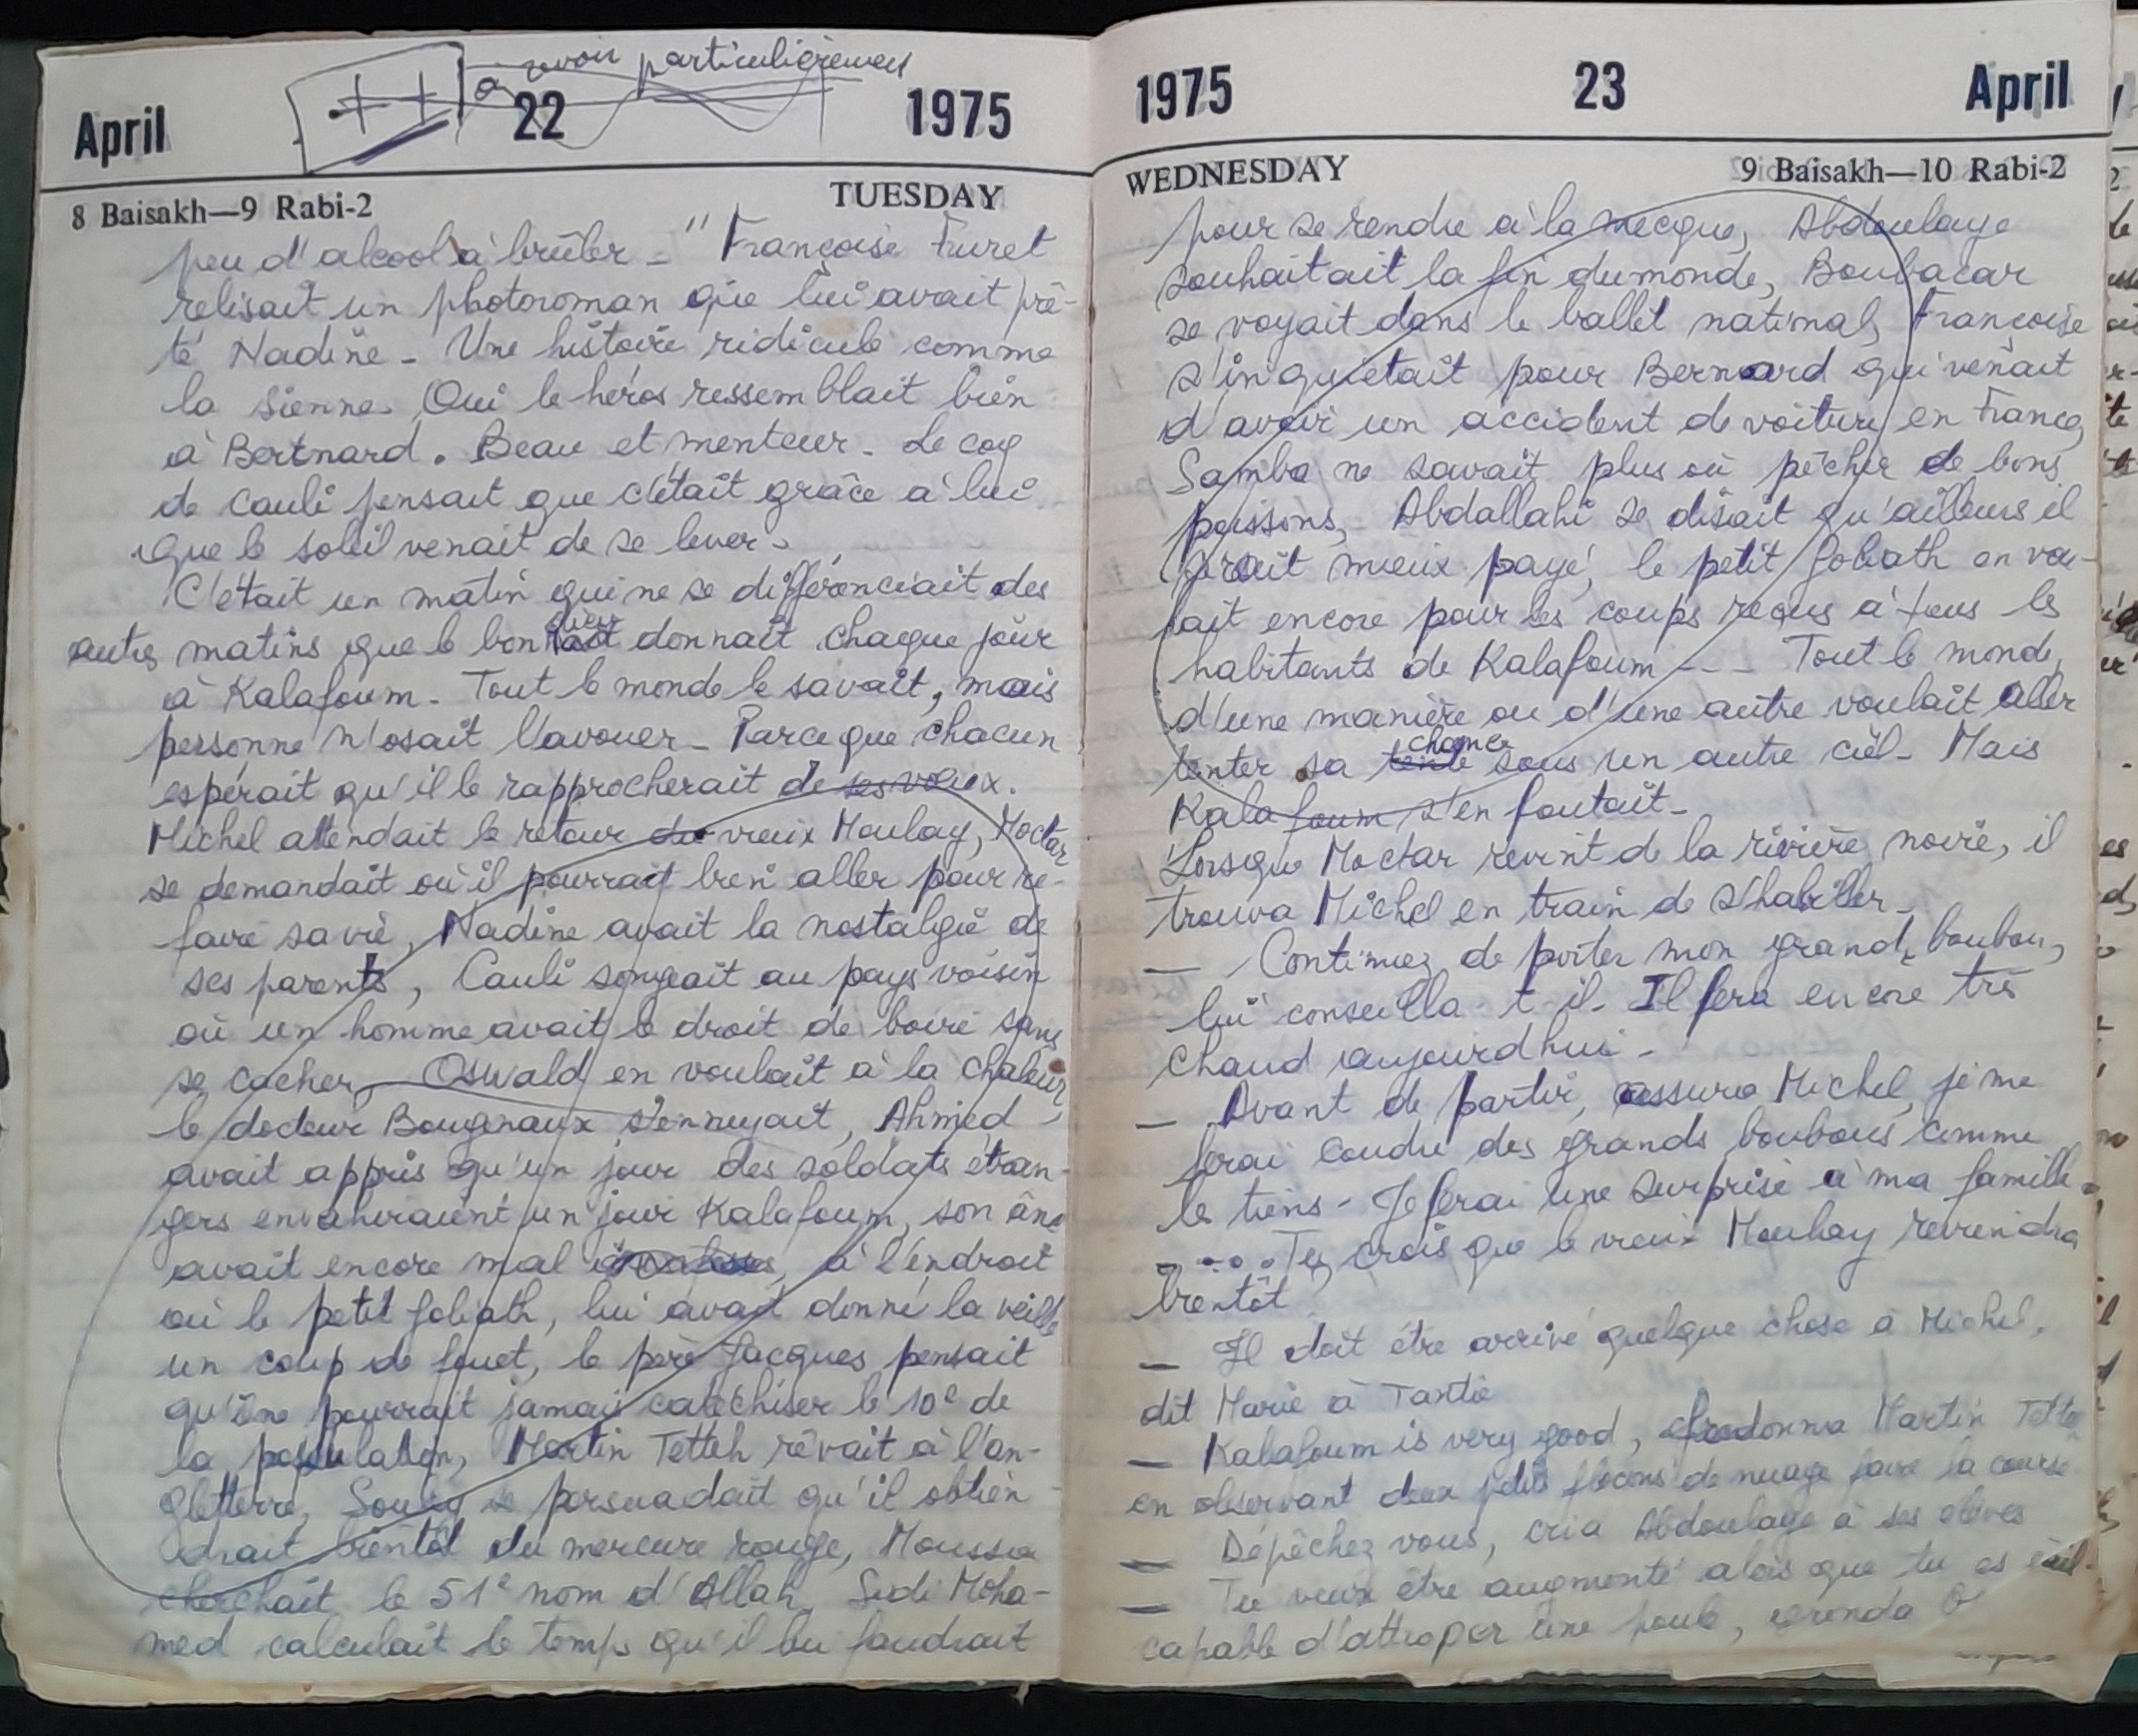 à revoir particulièrement
++
April 22 1975
8 Baisakh—9 Rabi-2 TUESDAY
peu d'alcool à brûler - " Françoise Furet
relisait un photoroman que lui avait prê-
té Nadine - Une histoire ridicule comme
la sienne. Oui le héros ressemblait bien
à Bertnard. Beau et menteur - Le coq
de Cauli pensait que c'était grâce à lui
que le soleil venait de se lever -
C'était un matin qui ne se différenciait des
autres matins que le bon Dieu donnait chaque jour
à Kalafoum - Tout le monde le savait, mais
personne n'osait l'avouer - Parce que chacun
espérait qu'il le rapprocherait de ses voeux.
Michel attendait le retour du vieux Moulay, Moctar
se demandait où il pourrait bien aller pour re-
faire sa vie, Nadine avait la nostalgie de
ses parents, Cauli songeait au pays voisin
où un homme avait le droit de boire sans
se cacher, Oswald en voulait à la chaleur,
le docteur Bougnaux s'ennuyait, Ahmed
avait appris qu'un jour des soldats étran-
gers envahiraient un jour Kalafoum, son âne
avait encore mal à l'endroit
où le petit Goliath, lui avait donné la veille
un coup de fouet, le père Jacques pensait
qu'on ne pourrait jamais catéchiser le 10e de
la population, Martin Tetteh rêvait à l'an-
gleterre, se persuadait qu'il obtien-
drait bientôt du mercure rouge, Moussa
cherchait le 51e nom d'Allah, Sidi Moha-
med calculait le temps qu'il lui faudrait
1975 23 April
WEDNESDAY 9 Baisakh—10 Rabi-2
pour se rendre à la mecque, Abdoulaye
souhaitait la fin du monde, Boubacar
se voyait dans le ballet national, Françoise
s'inquiétait pour Bernard qui venait
d'avoir un accident de voiture en France,
Samba ne savait plus où pêcher de bons
poissons, Abdallahi se disait qu'ailleurs il
serait mieux payé, le petit Goliath en vou-
lait encore pour les coups reçus à tous les
habitants de Kalafoum - - - Tout le monde,
d'une manière ou d'une autre voulait aller
tenter sa tente chance sous un autre ciel - Mais
Kalafoum s'en foutait -
Lorsque Moctar revint de la rivière noire, il
trouva Michel en train de s'habiller -
— Continuez de porter mon grand boubou,
lui conseilla-t-il. Il fera encore très
chaud aujourd'hui -
— Avant de partir, assura Michel, je me
ferai coudre des grands boubous comme
les tiens - Je ferai une surprise à ma famille.
- .... Tu crois que le vieux Moulay reviendra
bientôt
— Il doit être arrivé quelque chose à Michel,
dit Marie à Tantie
— Kalafoum is very good, fredonna Martin Tette
en observant deux petits flocons de nuage faire la course
— Dépêchez vous, cria Abdoulaye à ses élèves
— Tu veux être augmenté alors que tu es
capable d'attraper une poule, gronda